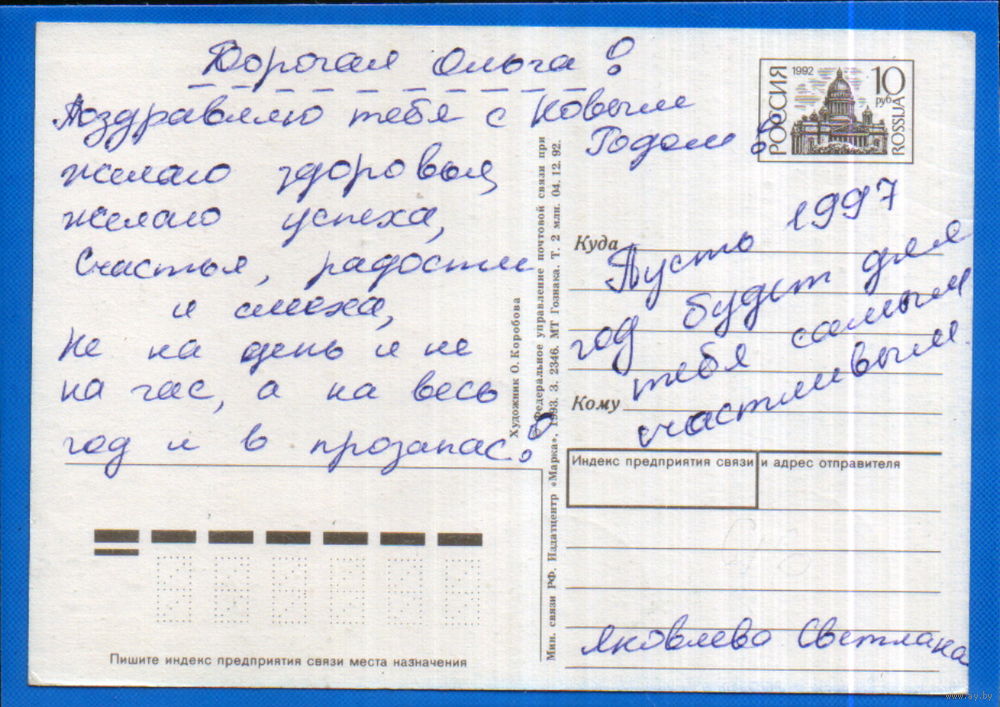 Дорогая Ольга!
Поздравляю тебя с Новым
Годом!
желаю здоровья,
желаю успеха,
Счастья, радости
и смеха,
Не на день и не
на час, а на весь
год и в прозапас!
Художник О. Коробова
© Федеральное управление почтовой связи при
Мин. связи РФ. Издатцентр «Марка», 1993. З. 2346. МТ Гознака. Т. 2 млн. 04. 12. 92.
РОССИЯ
1992
10
руб
ROSSIJA
Куда
Пусть 1997
год будет для
тебя самым
счастливым.
Кому
Индекс предприятия связи и адрес отправителя
Яковлева Светлана
Пишите индекс предприятия связи места назначения
www.ay.by